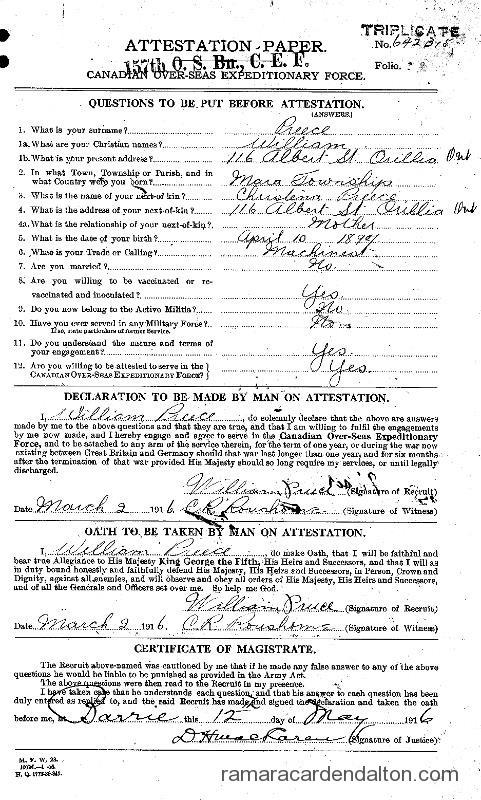 TRIPLICATE
ATTESTATION PAPER.
No. 642315
157th O. S. Bn., C. E. F.
Folio.
CANADIAN OVER-SEAS EXPEDITIONARY FORCE.
QUESTIONS TO BE PUT BEFORE ATTESTATION.
(ANSWERS)
1. What is your surname? Preece
1a. What are your Christian names? William
1b. What is your present address? 116 Albert St. Orillia Ont
2. In what Town, Township or Parish, and in
what Country were you born? Mara Township
3. What is the name of your next-of-kin? Christena Preece
4. What is the address of your next-of-kin? 116 Albert St Orillia Ont
4a. What is the relationship of your next-of-kin? Mother
5. What is the date of your birth? April 10
6. What is your Trade or Calling? Machinist
7. Are you married? No.
8. Are you willing to be vaccinated or re-
vaccinated and inoculated? Yes.
9. Do you now belong to the Active Militia? No
10. Have you ever served in any Military Force? No
If so, state particulars of former Service.
11. Do you understand the nature and terms of
your engagement? Yes.
12. Are you willing to be attested to serve in the
CANADIAN OVER-SEAS EXPEDITIONARY FORCE? Yes.
DECLARATION TO BE MADE BY MAN ON ATTESTATION.
I, William Preece, do solemnly declare that the above are answers
made by me to the above questions and that they are true, and that I am willing to fulfil the engagements
by me now made, and I hereby engage and agree to serve in the Canadian Over-Seas Expeditionary
Force, and to be attached to any arm of the service therein, for the term of one year, or during the war now
existing between Great Britain and Germany should that war last longer than one year, and for six months
after the termination of that war provided His Majesty should so long require my services, or until legally
discharged.
William Preece (Signature of Recruit)
Date March 2 1916 (Signature of Witness)
OATH TO BE TAKEN BY MAN ON ATTESTATION.
I, William Preece, do make Oath, that I will be faithful and
bear true Allegiance to His Majesty King George the Fifth, His Heirs and Successors, and that I will as
in duty bound honestly and faithfully defend His Majesty, His Heirs and Successors, in Person, Crown and
Dignity, against all enemies, and will observe and obey all orders of His Majesty, His Heirs and Successors,
and of all the Generals and Officers set over me. So help me God.
William Preece (Signature of Recruit)
Date March 2 1916 (Signature of Witness)
CERTIFICATE OF MAGISTRATE.
The Recruit above-named was cautioned by me that if he made any false answer to any of the above
questions he would be liable to be punished as provided in the Army Act.
The above questions were then read to the Recruit in my presence.
I have taken care that he understands each question, and that his answer to each question has been
duly entered as replied to, and the said Recruit has made and signed the declaration and taken the oath
before me, at Barrie this 12 day of May 1916
(Signature of Justice)
M. F. W. 23.
ramaracardendalton.com